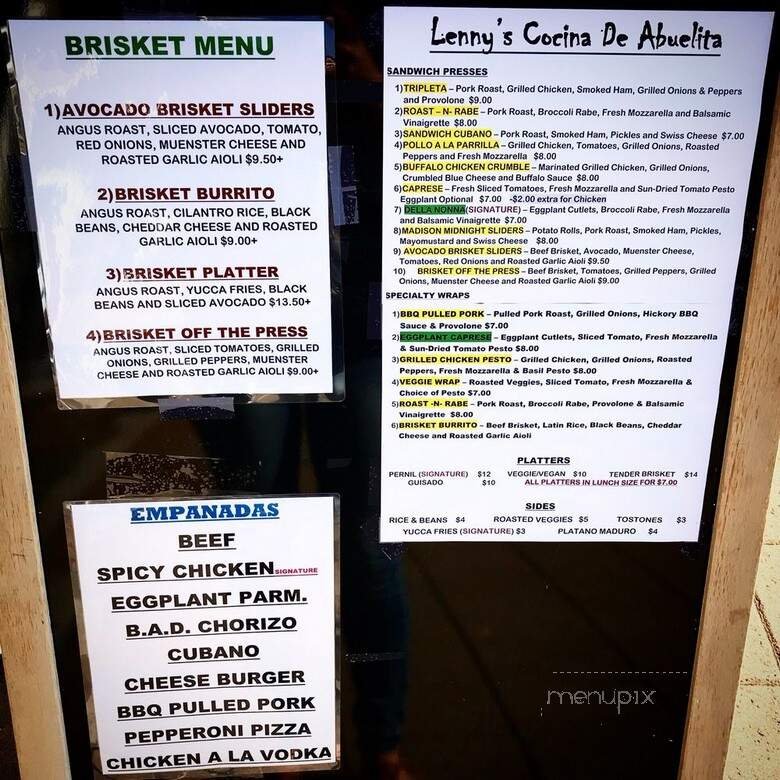 BRISKET MENU
1)AVOCADO BRISKET SLIDERS
ANGUS ROAST, SLICED AVOCADO, TOMATO,
RED ONIONS, MUENSTER CHEESE AND
ROASTED GARLIC AIOLI $9.50+
2)BRISKET BURRITO
ANGUS ROAST, CILANTRO RICE, BLACK
BEANS, CHEDDAR CHEESE AND ROASTED
GARLIC AIOLI $9.00+
3)BRISKET PLATTER
ANGUS ROAST, YUCCA FRIES, BLACK
BEANS AND SLICED AVOCADO $13.50+
4)BRISKET OFF THE PRESS
ANGUS ROAST, SLICED TOMATOES, GRILLED
ONIONS, GRILLED PEPPERS, MUENSTER
CHEESE AND ROASTED GARLIC AIOLI $9.00+
EMPANADAS
BEEF
SPICY CHICKEN SIGNATURE
EGGPLANT PARM.
B.A.D. CHORIZO
CUBANO
CHEESE BURGER
BBQ PULLED PORK
PEPPERONI PIZZA
CHICKEN A LA VODKA
Lenny's Cocina De Abuelita
SANDWICH PRESSES
1)TRIPLETA – Pork Roast, Grilled Chicken, Smoked Ham, Grilled Onions & Peppers
and Provolone $9.00
2)ROAST – N- RABE – Pork Roast, Broccoli Rabe, Fresh Mozzarella and Balsamic
Vinaigrette $8.00
3)SANDWICH CUBANO – Pork Roast, Smoked Ham, Pickles and Swiss Cheese $7.00
4)POLLO A LA PARRILLA – Grilled Chicken, Tomatoes, Grilled Onions, Roasted
Peppers and Fresh Mozzarella $8.00
5)BUFFALO CHICKEN CRUMBLE – Marinated Grilled Chicken, Grilled Onions,
Crumbled Blue Cheese and Buffalo Sauce $8.00
6)CAPRESE – Fresh Sliced Tomatoes, Fresh Mozzarella and Sun-Dried Tomato Pesto
Eggplant Optional $7.00 -$2.00 extra for Chicken
7) DELLA NONNA(SIGNATURE) – Eggplant Cutlets, Broccoli Rabe, Fresh Mozzarella
and Balsamic Vinaigrette $7.00
8)MADISON MIDNIGHT SLIDERS – Potato Rolls, Pork Roast, Smoked Ham, Pickles,
Mayomustard and Swiss Cheese $8.00
9) AVOCADO BRISKET SLIDERS – Beef Brisket, Avocado, Muenster Cheese,
Tomatoes, Red Onions and Roasted Garlic Aioli $9.50
10) BRISKET OFF THE PRESS – Beef Brisket, Tomatoes, Grilled Peppers, Grilled
Onions, Muenster Cheese and Roasted Garlic Aioli $9.00
SPECIALTY WRAPS
1)BBQ PULLED PORK – Pulled Pork Roast, Grilled Onions, Hickory BBQ
Sauce & Provolone $7.00
2)EGGPLANT CAPRESE – Eggplant Cutlets, Sliced Tomato, Fresh Mozzarella
& Sun-Dried Tomato Pesto $8.00
3)GRILLED CHICKEN PESTO – Grilled Chicken, Grilled Onions, Roasted
Peppers, Fresh Mozzarella & Basil Pesto $8.00
4)VEGGIE WRAP – Roasted Veggies, Sliced Tomato, Fresh Mozzarella &
Choice of Pesto $7.00
5)ROAST -N- RABE – Pork Roast, Broccoli Rabe, Provolone & Balsamic
Vinaigrette $8.00
6)BRISKET BURRITO – Beef Brisket, Latin Rice, Black Beans, Cheddar
Cheese and Roasted Garlic Aioli
PLATTERS
PERNIL (SIGNATURE) $12 VEGGIE/VEGAN $10 TENDER BRISKET $14
GUISADO $10 ALL PLATTERS IN LUNCH SIZE FOR $7.00
SIDES
RICE & BEANS $4 ROASTED VEGGIES $5 TOSTONES $3
YUCCA FRIES (SIGNATURE) $3 PLATANO MADURO $4
menupix